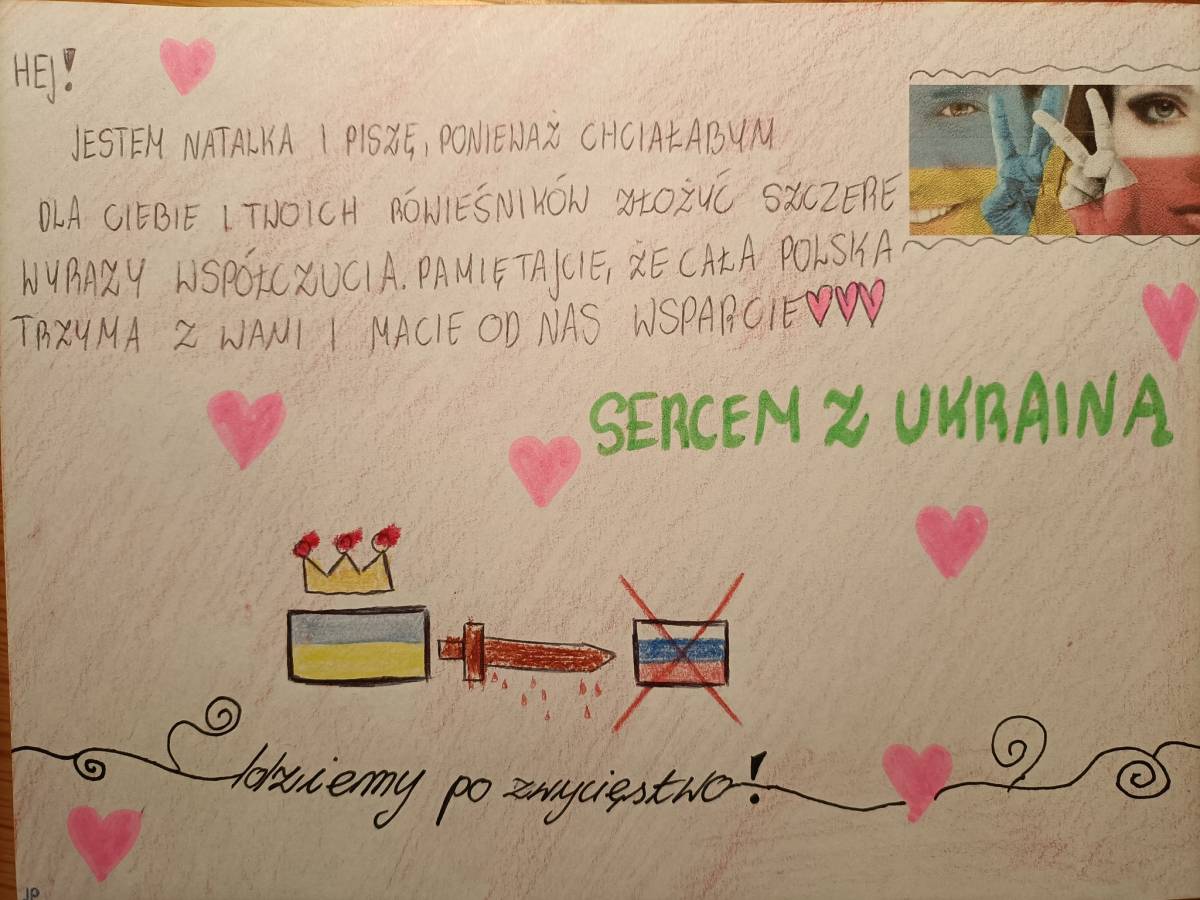 HEJ!
JESTEM NATALKA I PISZĘ, PONIEWAŻ CHCIAŁABYM
DLA CIEBIE I TWOICH RÓWIEŚNIKÓW ZŁOŻYĆ SZCZERE
WYRAZY WSPÓŁCZUCIA. PAMIĘTAJCIE, ŻE CAŁA POLSKA
TRZYMA Z WAMI I MACIE OD NAS WSPARCIE
SERCEM Z UKRAINĄ
Idziemy po zwycięstwo!
JP